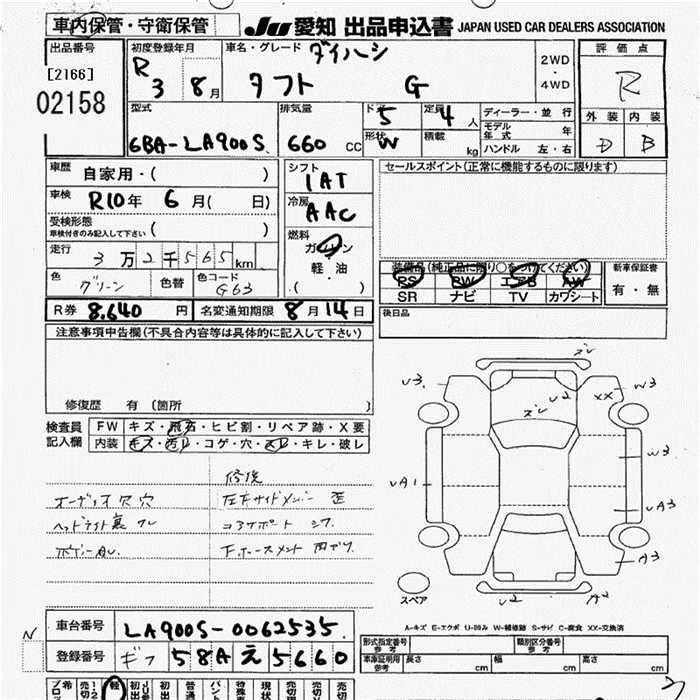 車内保管・守衛保管
JU 愛知 出品申込書 JAPAN USED CAR DEALERS ASSOCIATION
出品番号
[2166]
02158
初度登録年月
R3 8月
車名・グレード ダイハツ
タフト G
2WD
・
4WD
評価点
R
外装 内装
D B
型式
6BA-LA900S
排気量
660 CC
ドア 5
形状 W
定員 4人
積載 kg
ディーラー・並行
モデル年式 年
ハンドル 左・右
車歴 自家用・( )
車検 R10年 6月( 日)
受検形態
車検付きのみ記入して下さい ( )
走行 3万2千565km
色 グリーン
色替
色コード G63
シフト
IAT
冷房
AAC
燃料
ガソリン
軽・油
( )
セールスポイント(正常に機能するものに限ります)
装備品(純正品に限り○をつけてください)
PS PW エアB AW
SR ナビ TV カワシート
新車保証書
有・無
R券 8,640円 名変通知期限 8月14日
後日品
注意事項申告欄(不具合内容等は具体的に記入して下さい)
修復歴 有 (箇所 )
検査員
記入欄
FW キズ・飛石・ヒビ割・リペア跡・X要
内装 キズ・汚レ・コゲ・穴・スレ・キレ・破レ
修復
オーディオ欠 穴
左右サイドメンバー 歪
ヘッドライト裏
コアサポート
スレ
U3
W3
XX
U2
スレ
W3
UA1
UA3
A3
U2
A2
スペア
A-キズ E-エクボ U-凹み W-補修跡 S-サビ C-腐食 XX-交換済
車台番号 LA900S-0062535
登録番号 ギフ 58Aえ5660
N
型式指定番号
参考
類別区分番号
参考
車庫証明用
参考
長さ cm 幅 cm 高さ cm